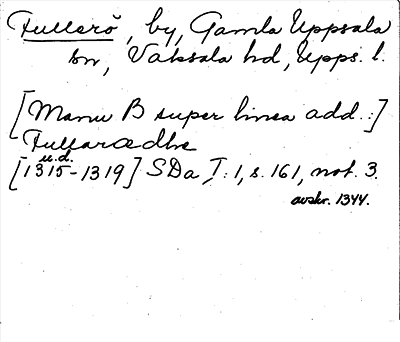 Fullerö, by, Gamla Uppsala
sn, Vaksala hd, Upps. l.
[Manu B super linea add.:]
Fullaroedhe
u.d.
[1315-1319] SDa I:1, s. 161, not. 3.
avskr. 1344.